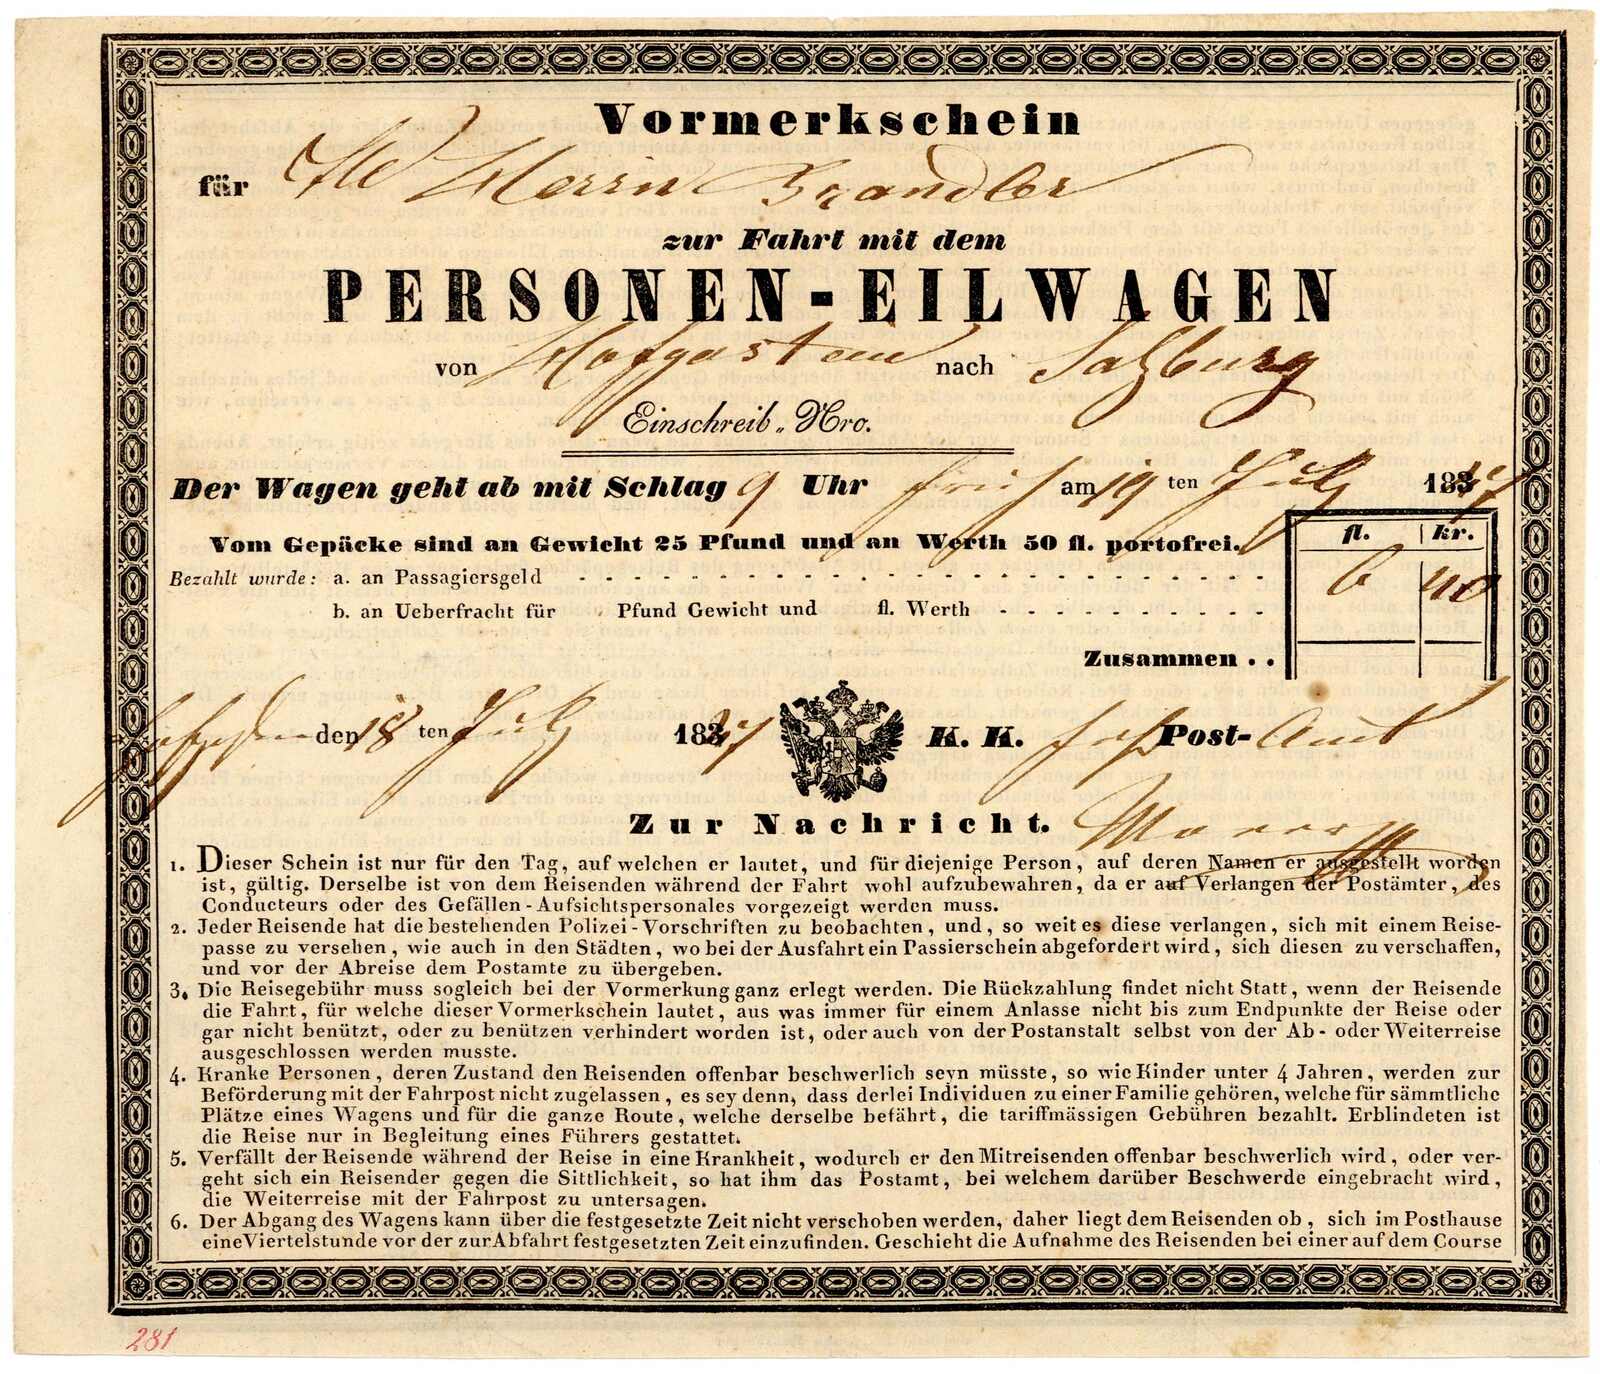 Vormerkschein
für Herrn Brandler
zur Fahrt mit dem
PERSONEN-EILWAGEN
von Hofgastein nach Salzburg
Einschreib „ Nro.
Der Wagen geht ab mit Schlag 9 Uhr früh am 19 ten July 1847
Vom Gepäcke sind an Gewicht 25 Pfund und an Werth 50 fl. portofrei.
fl. kr.
Bezahlt wurde: a. an Passagiersgeld 6 40
b. an Ueberfracht für Pfund Gewicht und fl. Werth
Zusammen . .
Hofgastein den 18 ten July 1847 K. K. Post-Amt
Zur Nachricht.
1. Dieser Schein ist nur für den Tag, auf welchen er lautet, und für diejenige Person, auf deren Namen er ausgestellt worden
ist, gültig. Derselbe ist von dem Reisenden während der Fahrt wohl aufzubewahren, da er auf Verlangen der Postämter, des
Conducteurs oder des Gefällen-Aufsichtspersonales vorgezeigt werden muss.
2. Jeder Reisende hat die bestehenden Polizei-Vorschriften zu beobachten, und, so weit es diese verlangen, sich mit einem Reise-
passe zu versehen, wie auch in den Städten, wo bei der Ausfahrt ein Passierschein abgefordert wird, sich diesen zu verschaffen,
und vor der Abreise dem Postamte zu übergeben.
3. Die Reisegebühr muss sogleich bei der Vormerkung ganz erlegt werden. Die Rückzahlung findet nicht Statt, wenn der Reisende
die Fahrt, für welche dieser Vormerkschein lautet, aus was immer für einem Anlasse nicht bis zum Endpunkte der Reise oder
gar nicht benützt, oder zu benützen verhindert worden ist, oder auch von der Postanstalt selbst von der Ab- oder Weiterreise
ausgeschlossen werden musste.
4. Kranke Personen, deren Zustand den Reisenden offenbar beschwerlich seyn müsste, so wie Kinder unter 4 Jahren, werden zur
Beförderung mit der Fahrpost nicht zugelassen, es sey denn, dass derlei Individuen zu einer Familie gehören, welche für sämmtliche
Plätze eines Wagens und für die ganze Route, welche derselbe befährt, die tariffmässigen Gebühren bezahlt. Erblindeten ist
die Reise nur in Begleitung eines Führers gestattet.
5. Verfällt der Reisende während der Reise in eine Krankheit, wodurch er den Mitreisenden offenbar beschwerlich wird, oder ver-
geht sich ein Reisender gegen die Sittlichkeit, so hat ihm das Postamt, bei welchem darüber Beschwerde eingebracht wird,
die Weiterreise mit der Fahrpost zu untersagen.
6. Der Abgang des Wagens kann über die festgesetzte Zeit nicht verschoben werden, daher liegt dem Reisenden ob, sich im Posthause
eine Viertelstunde vor der zur Abfahrt festgesetzten Zeit einzufinden. Geschieht die Aufnahme des Reisenden bei einer auf dem Course
281